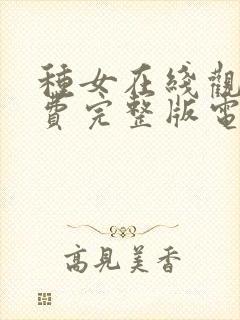 種女在綫觀
費完整版電
高見美香